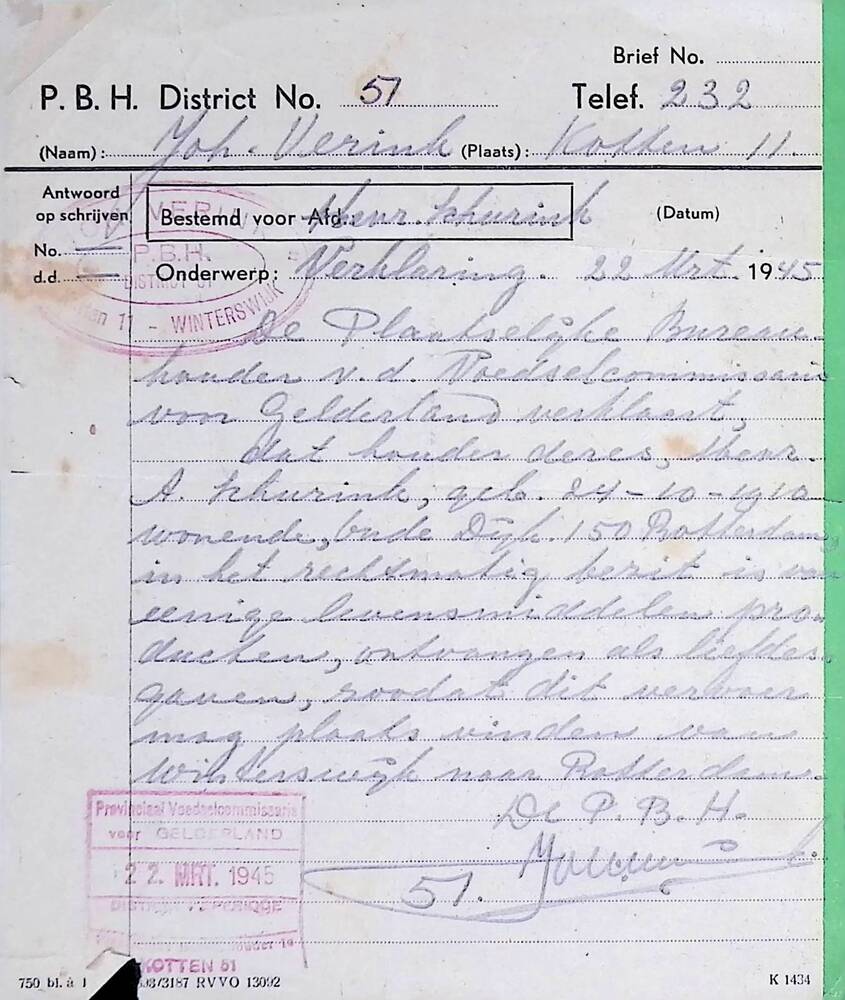 Brief No.
P. B. H. District No. 51 Telef. 232
(Naam): Joh. Verink (Plaats): Kotten 11.
Antwoord
op schrijven
Bestemd voor Afd.: Schurink (Datum)
No.
P.B.H.
d.d.
DISTRICT 51
Onderwerp: Verklaring. 22 Mrt. 1945
11 - WINTERSWIJK
De Plaatselijke Bureau-
houder v.d. Voedselcommissaris
voor Gelderland verklaart,
dat houder deres,
A. Schurink, geb. 24-10-1910
wonende, Oude Dijk. 150 Rotterdam,
in het rechtmatig bezit is van
eenige levensmiddelen pro-
ducten, ontvangen als liefdes-
gaven, zoodat dit vervoer
mag plaats vinden van
Winterswijk naar Rotterdam.
De P. B. H.
51.
Provinciaal Voedselcommissaris
voor GELDERLAND
22. MRT. 1945
KOTTEN 51
750 bl. à 1 3187 RVVO 13092 K 1434